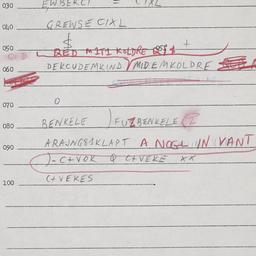 030 EWBERCI = CIXL
040 GREWSE CIXL
$
050 RED M1T1 KOLDRE +
060 DEKCUDEMKIND MIDEMKOLDRE
070 O
080 BENKELE ) FUZBENKELE
090 ARAJNGS1KLAPT A NOGL IN VANT
)-C+VOK Q C+VEKE XX
100 C+VEKES